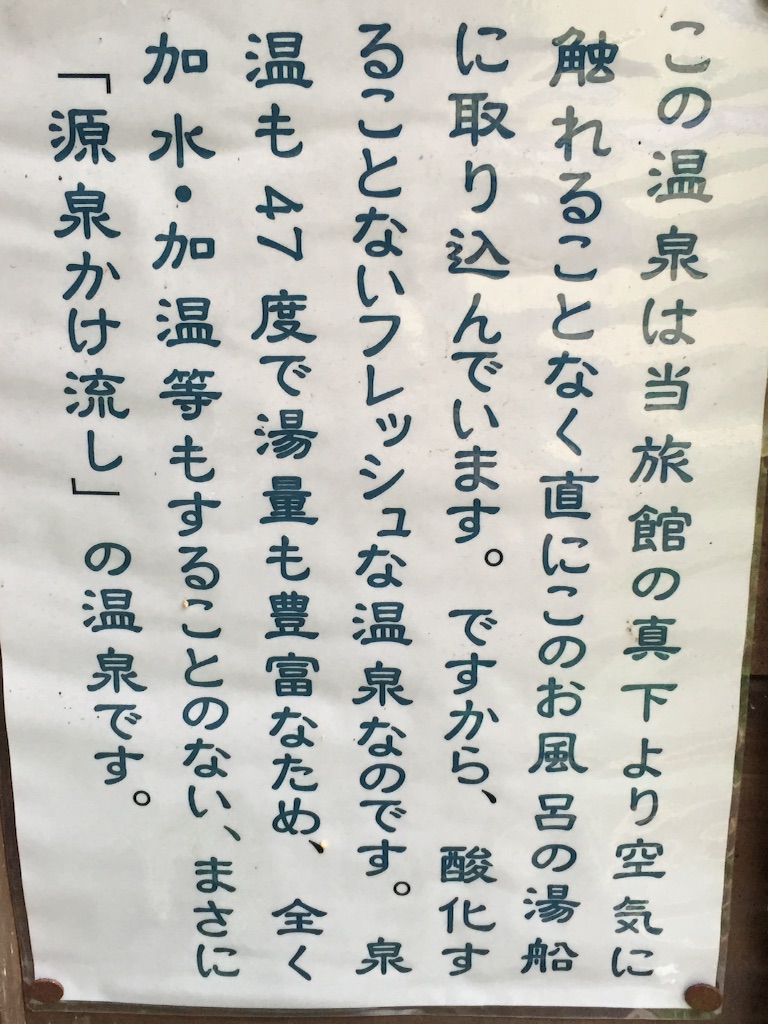 この温泉は当旅館の真下より空気に
触れることなく直にこのお風呂の湯船
に取り込んでいます。ですから、酸化す
ることないフレッシュな温泉なのです。泉
温も47度で湯量も豊富なため、全く
加水・加温等もすることのない、まさに
「源泉かけ流し」の温泉です。